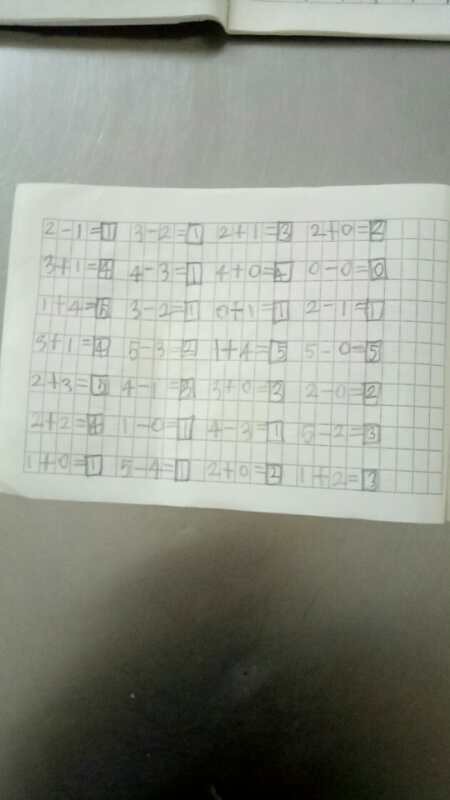 2-1=1 3-2=1 2+1=3 2+0=2
3+1=4 4-3=1 4+0=4 0-0=0
1+4=5 3-2=1 0+1=1 2-1=1
3+1=4 5-3=2 1+4=5 5-0=5
2+3=5 4-1=3 3+0=3 2-0=2
2+2=4 1-0=1 4-3=1 5-2=3
1+0=1 5-4=1 2+0=2 1+2=3